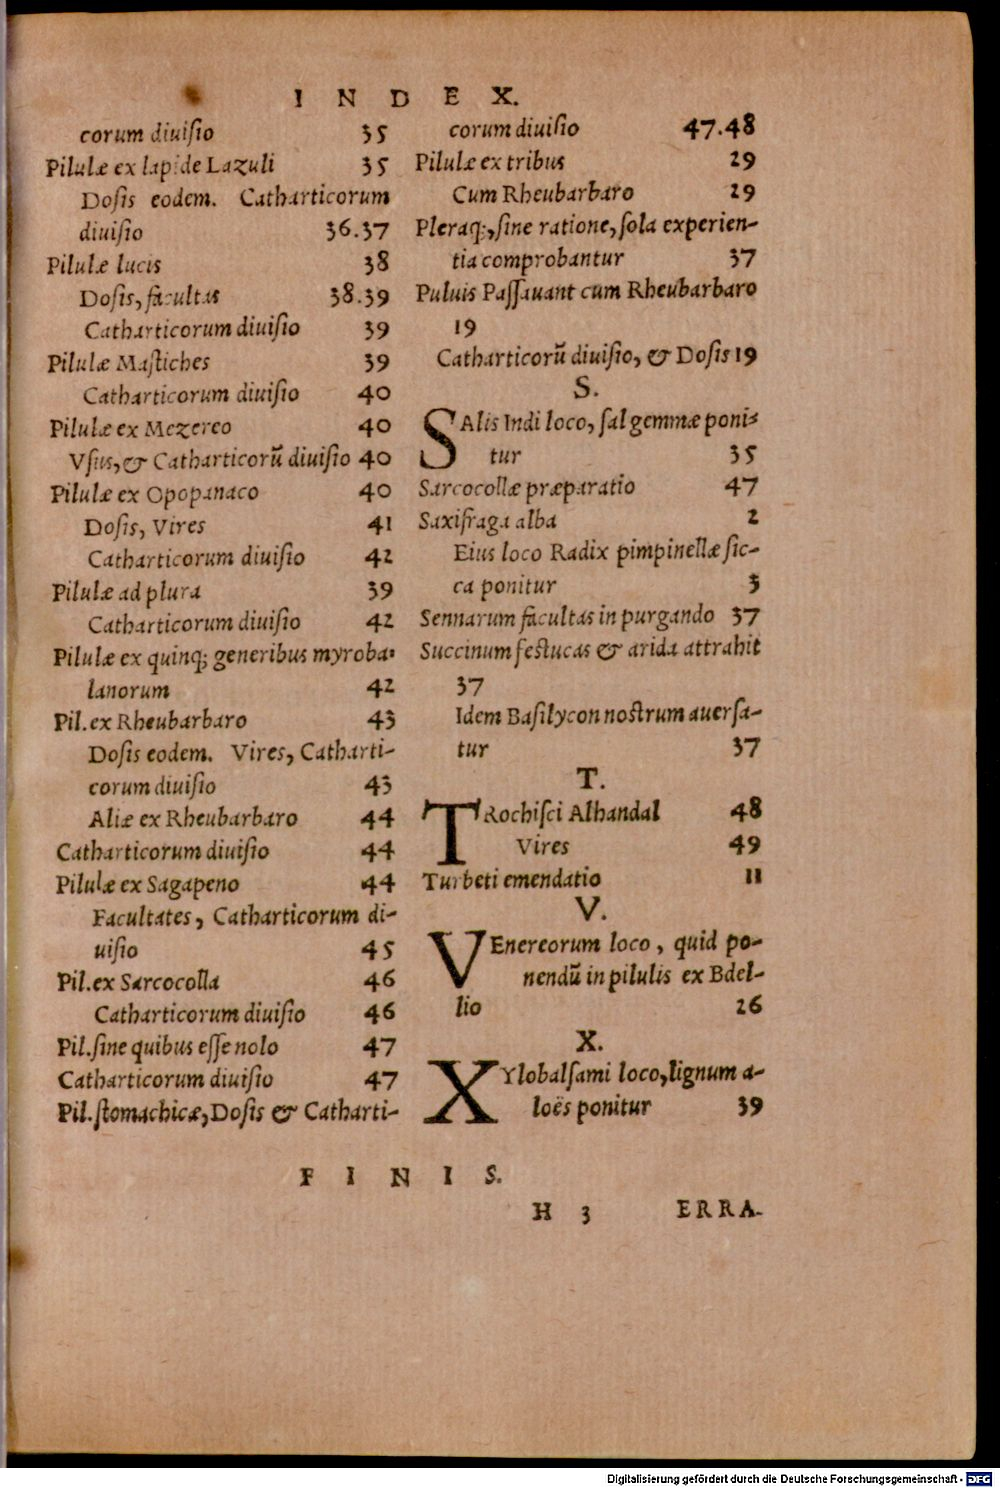 INDEX.
corum diuiſio 35
Pilulæ ex lapide Lazuli 35
Doſis eodem. Catharticorum
diuiſio 36.37
Pilulæ lucis 38
Doſis, facultas 38.39
Catharticorum diuiſio 39
Pilulæ Maſtiches 39
Catharticorum diuiſio 40
Pilulæ ex Mezereo 40
Vſus, & Catharticorũ diuiſio 40
Pilulæ ex Opopanaco 40
Doſis, Vires 41
Catharticorum diuiſio 42
Pilulæ ad plura 39
Catharticorum diuiſio 42
Pilulæ ex quinq; generibus myroba-
lanorum 42
Pil. ex Rheubarbaro 43
Doſis eodem. Vires, Catharti-
corum diuiſio 43
Aliæ ex Rheubarbaro 44
Catharticorum diuiſio 44
Pilulæ ex Sagapeno 44
Facultates, Catharticorum di-
uiſio 45
Pil. ex Sarcocolla 46
Catharticorum diuiſio 46
Pil. ſine quibus eſſe nolo 47
Catharticorum diuiſio 47
Pil. ſtomachicæ, Doſis & Catharti-
corum diuiſio 47.48
Pilulæ ex tribus 29
Cum Rheubarbaro 29
Pleraq;, ſine ratione, ſola experien-
tia comprobantur 37
Puluis Paſſauant cum Rheubarbaro
19
Catharticorũ diuiſio, & Doſis 19
S.
SAlis Indi loco, ſal gemmæ poni-
tur 35
Sarcocollæ præparatio 47
Saxifraga alba 2
Eius loco Radix pimpinellæ ſic-
ca ponitur 3
Sennarum facultas in purgando 37
Succinum feſtucas & arida attrahit
37
Idem Baſilycon noſtrum auerſa-
tur 37
T.
TRochiſci Alhandal 48
Vires 49
Turbeti emendatio 11
V.
VEnereorum loco, quid po-
nendũ in pilulis ex Bdel-
lio 26
X.
XYlobalſami loco, lignum a-
loës ponitur 39
FINIS.
H 3 ERRA-
Digitalisierung gefördert durch die Deutsche Forschungsgemeinschaft - DFG